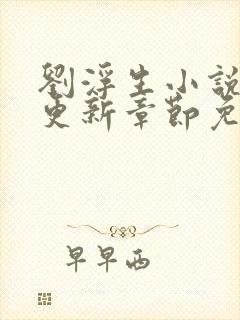 劉浮生小說
更新章節免
早早西